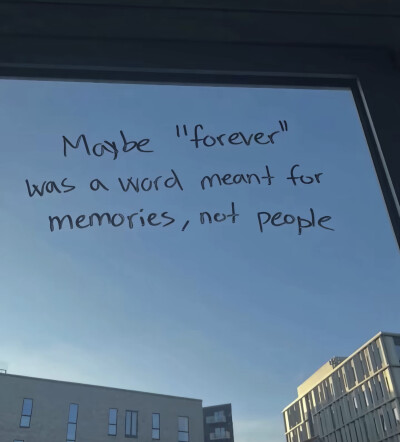 Maybe "forever"
was a word meant for
memories, not people